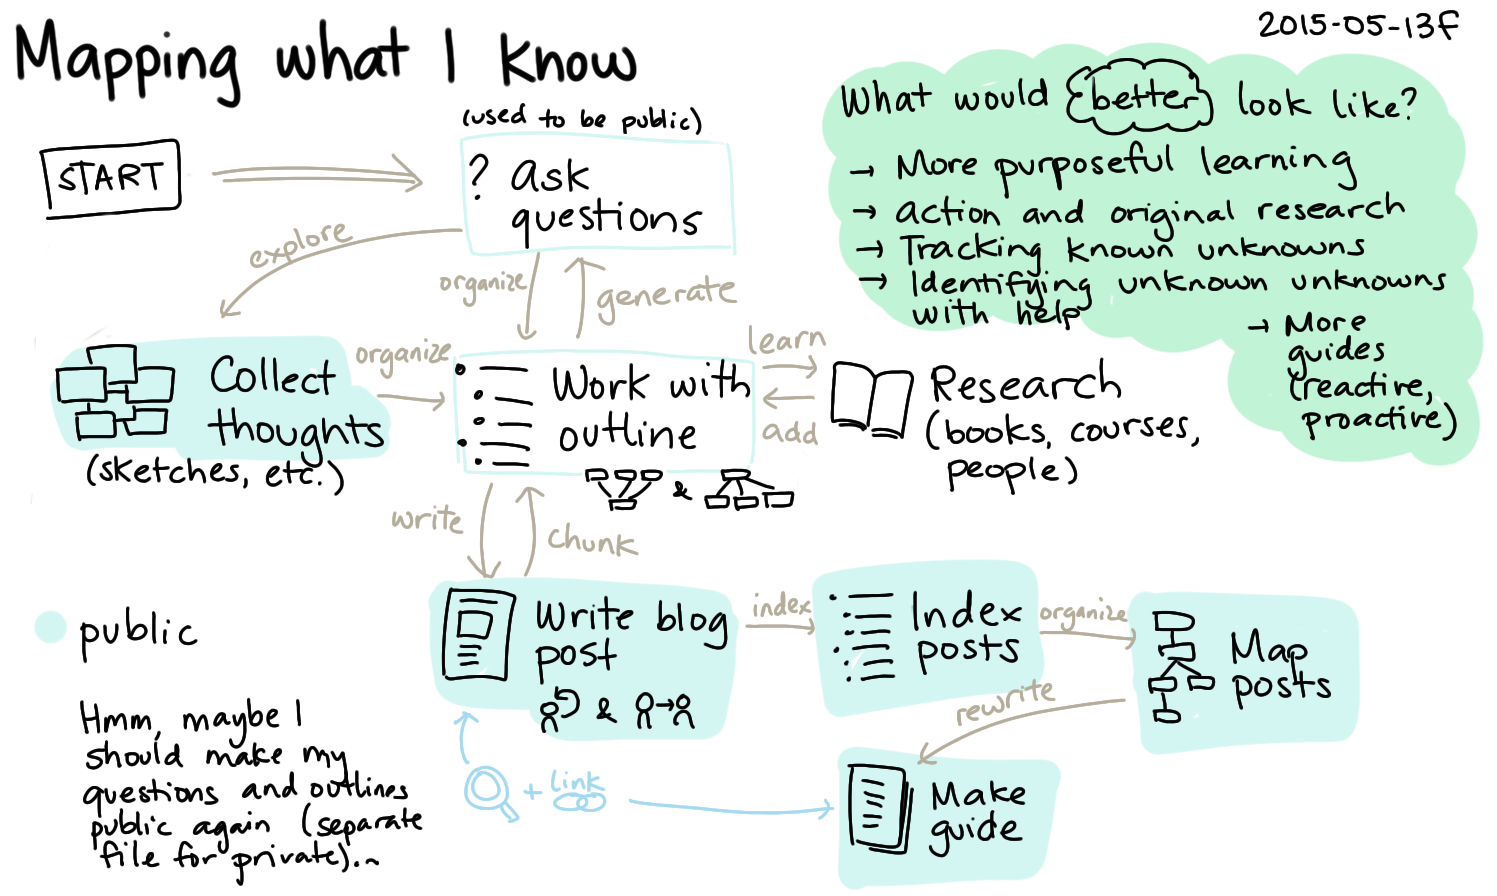 Mapping what I know
2015-05-13f
(used to be public)
START
? Ask
questions
What would better look like?
→ More purposeful learning
→ Action and original research
→ Tracking known unknowns
→ Identifying unknown unknowns
with help
→ More
guides
(reactive,
proactive)
explore
organize
generate
Collect
thoughts
(sketches, etc.)
organize
Work with
outline
&
learn
add
Research
(books, courses,
people)
write
chunk
Write blog
post
&
index
Index
posts
organize
Map
posts
rewrite
+ link
Make
guide
public
Hmm, maybe I
should make my
questions and outlines
public again (separate
file for private).~